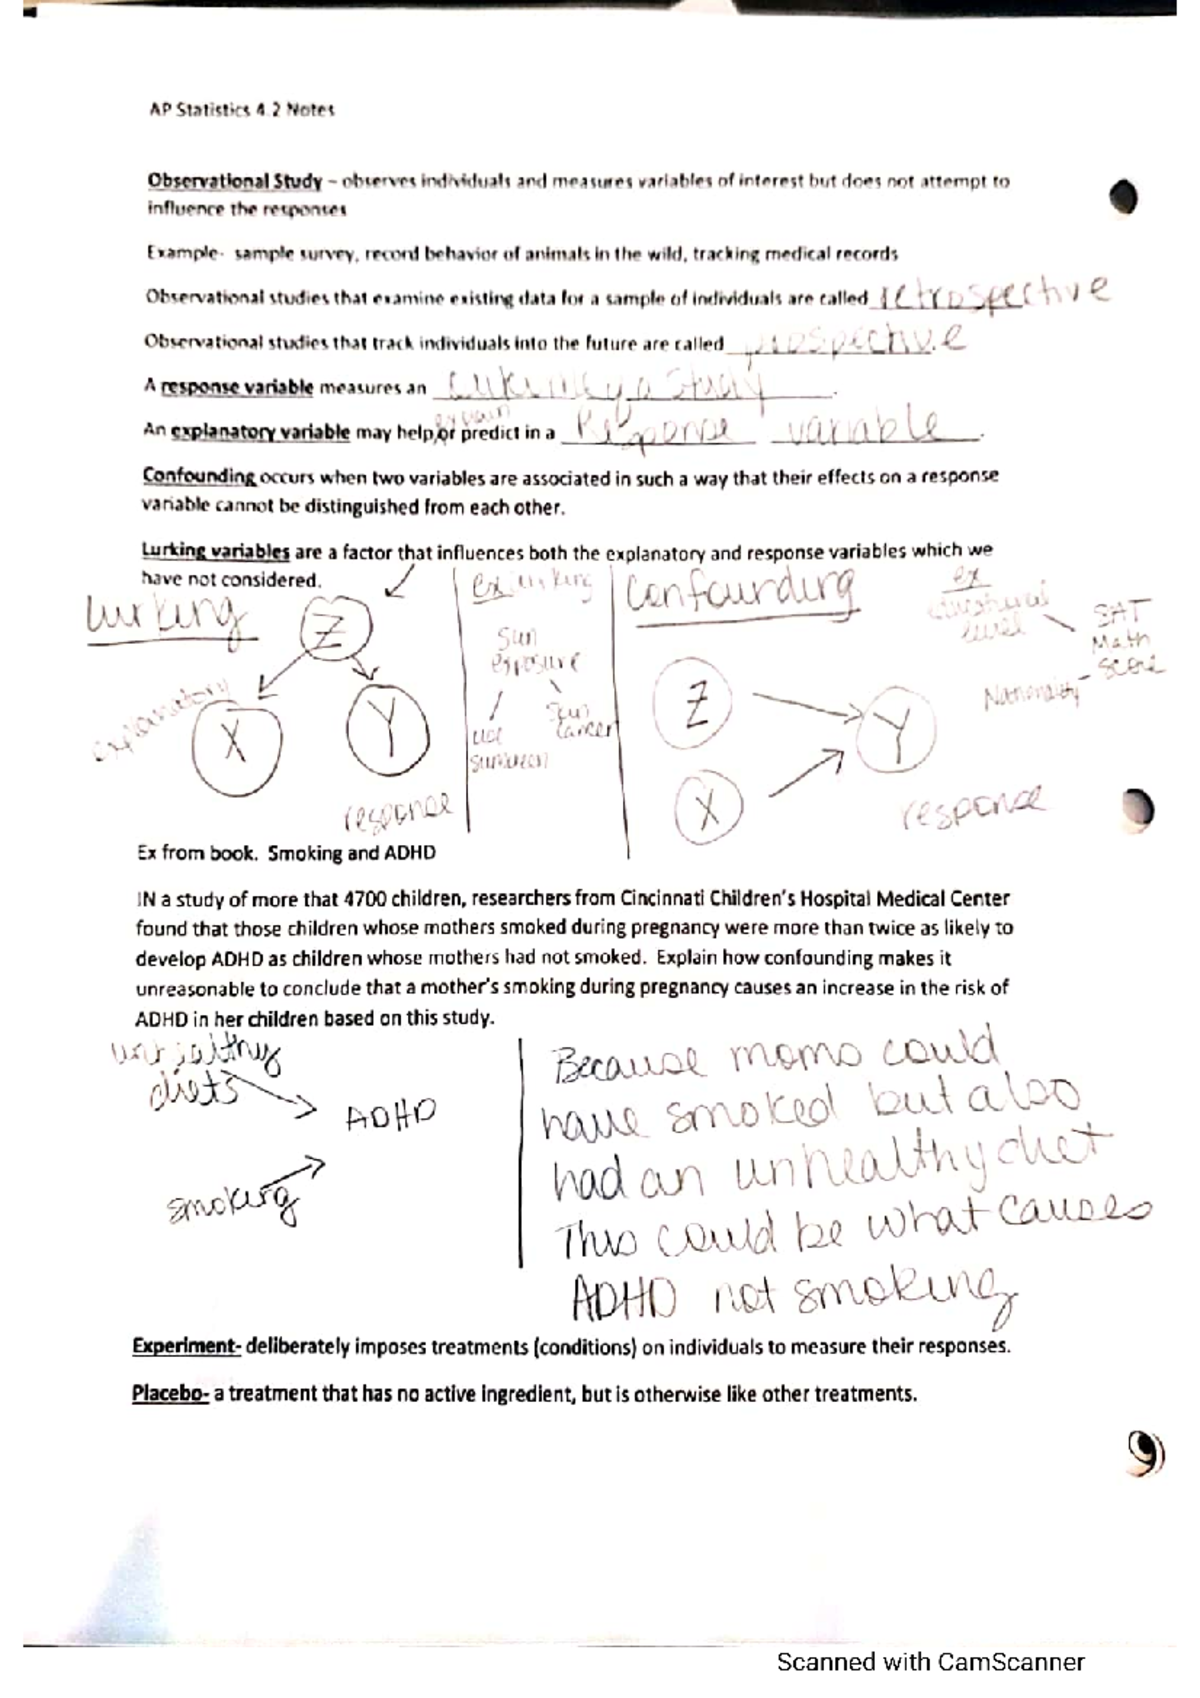 AP Statistics 4.2 Notes
Observational Study – observes individuals and measures variables of interest but does not attempt to
influence the responses
Example- sample survey, record behavior of animals in the wild, tracking medical records
Observational studies that examine existing data for a sample of individuals are called retrospective
Observational studies that track individuals into the future are called prospective
A response variable measures an of a study.
explain
An explanatory variable may help or predict in a Response variable.
Confounding occurs when two variables are associated in such a way that their effects on a response
variable cannot be distinguished from each other.
Lurking variables are a factor that influences both the explanatory and response variables which we
have not considered.
lurking
Z
explanatory
X
Y
response
ex lurking
sun
exposure
use
sunscreen
skin
cancer
confounding
Z
X
Y
response
ex
level
Nationality
SAT
Math
score
Ex from book. Smoking and ADHD
IN a study of more that 4700 children, researchers from Cincinnati Children's Hospital Medical Center
found that those children whose mothers smoked during pregnancy were more than twice as likely to
develop ADHD as children whose mothers had not smoked. Explain how confounding makes it
unreasonable to conclude that a mother's smoking during pregnancy causes an increase in the risk of
ADHD in her children based on this study.
unhealthy
diets
ADHD
smoking
Because moms could
have smoked but also
had an unhealthy diet
This could be what causes
ADHD not smoking
Experiment- deliberately imposes treatments (conditions) on individuals to measure their responses.
Placebo- a treatment that has no active ingredient, but is otherwise like other treatments.
Scanned with CamScanner